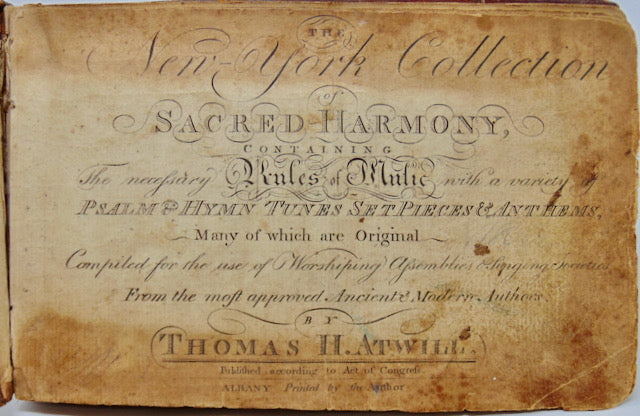 THE
New-York Collection
of
SACRED HARMONY,
CONTAINING
The neceſsary Rules of Muſic with a variety of
PSALM & HYMN TUNES SET PIECES & ANTHEMS,
Many of which are Original
Compiled for the use of Worshiping Aſsemblies & Singing Societies
From the moſt approved Ancient & Modern Authors
BY
THOMAS H. ATWILL.
Publiſhed according to Act of Congreſs
ALBANY Printed by the Author